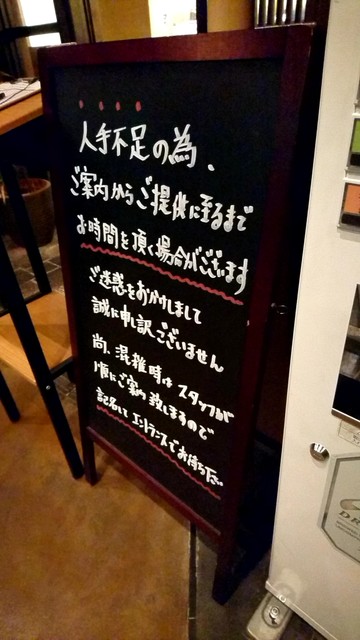 人手不足の為、
ご案内からご提供に至るまで
お時間を頂く場合がございます
ご迷惑をおかけしまして
誠に申し訳ございません
尚、混雑時は スタッフが
順にご案内致しまるので
記名して エントランスでお待ち下さい